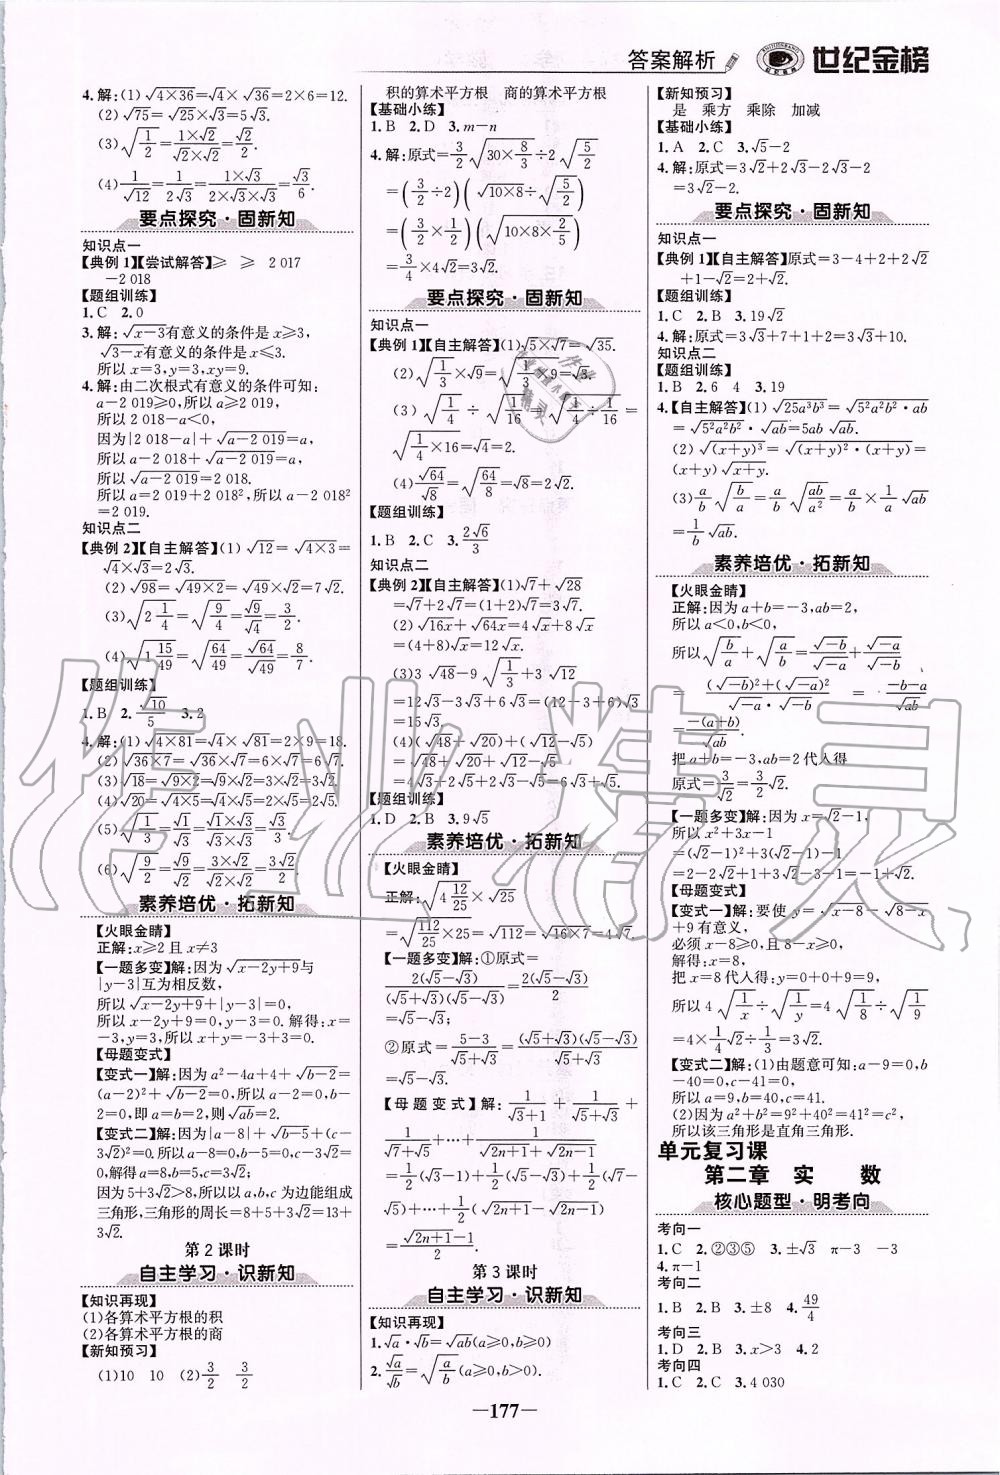 答案解析 世纪金榜
4.解:(1)√(4×36)=√4×√36=2×6=12.
(2)√75=√25×√3=5√3.
(3)√(1/2)=(1×√2)/(√2×√2)=√2/2.
(4)1/√12=1/(2√3)=(1×√3)/(2×√3×√3)=√3/6.
要点探究·固新知
知识点一
【典例1】【尝试解答】≥ ≥ 2 017
-2 018
【题组训练】
1.C 2.0
3.解:√(x-3)有意义的条件是x≥3,
√(3-x)有意义的条件是x≤3.
所以x=3,y=3,xy=9.
4.解:由二次根式有意义的条件可知:
a-2 019≥0,所以a≥2 019,
所以2 018-a<0,
因为|2 018-a|+√(a-2 019)=a,
所以a-2 018+√(a-2 019)=a,
所以√(a-2 019)=2 018.
所以a=2 019+2 018²,所以a-2 018²
=2 019.
知识点二
【典例2】【自主解答】(1)√12=√(4×3)=
√4×√3=2√3.
(2)√98=√(49×2)=√49×√2=7√2.
(3)√(2 1/4)=√(9/4)=√9/√4=3/2.
(4)√(1 15/49)=√(64/49)=√64/√49=8/7.
【题组训练】
1.B 2.√10/5 3.2
4.解:(1)√(4×81)=√4×√81=2×9=18.
(2)√(36×7)=√36×√7=6×√7=6√7.
(3)√18=√(9×2)=√9×√2=3×√2=3√2.
(4)√20=√(4×5)=√4×√5=2×√5=2√5.
(5)√(1/3)=√1/√3=(√1×√3)/(√3×√3)=√3/3.
(6)√(9/2)=√9/√2=(3×√2)/(√2×√2)=3√2/2.
素养培优·拓新知
【火眼金睛】
正解:x≥2且x≠3
【一题多变】解:因为√(x-2y+9)与
|y-3|互为相反数,
所以√(x-2y+9)+|y-3|=0,
所以x-2y+9=0,y-3=0.解得:x=
-3,y=3,所以x+y=-3+3=0.
【母题变式】
【变式一】解:因为a²-4a+4+√(b-2)=
(a-2)²+√(b-2)=0,所以a-2=0,b-
2=0,即a=b=2,则√(ab)=2.
【变式二】解:因为|a-8|+√(b-5)+(c-
3√2)²=0,所以a-8=0,b-5=0,c-3√2
=0,解得a=8,b=5,c=3√2;
因为5+3√2>8,所以以a,b,c为边能组成
三角形,三角形的周长=8+5+3√2=13+
3√2.
第2课时
自主学习·识新知
【知识再现】
(1)各算术平方根的积
(2)各算术平方根的商
【新知预习】
(1)10 10 (2)3/2 3/2
积的算术平方根 商的算术平方根
【基础小练】
1.B 2.D 3.m-n
4.解:原式=3/2√(30×8/3)÷2√(5/2)
=(3/2÷2)(√(10×8)÷√(5/2))
=(3/2×1/2)(√(10×8×2/5))
=3/4×4√2=3√2.
要点探究·固新知
知识点一
【典例1】【自主解答】(1)√5×√7=√35.
(2)√(1/3)×√9=√(1/3×9)=√3.
(3)√(1/4)÷√(1/16)=√(1/4÷1/16)=
√(1/4×16)=√4=2.
(4)√64/√8=√(64/8)=√8=2√2.
【题组训练】
1.B 2.C 3.2√6/3
知识点二
【典例2】【自主解答】(1)√7+√28
=√7+2√7=(1+2)√7=3√7.
(2)√(16x)+√(64x)=4√x+8√x
=(4+8)√x=12√x.
(3)3√48-9√(1/3)+3√12
=12√3-3√3+6√3=(12-3+6)√3
=15√3.
(4)(√48+√20)+(√12-√5)
=√48+√20+√12-√5
=4√3+2√5+2√3-√5=6√3+√5.
【题组训练】
1.D 2.B 3.9√5
素养培优·拓新知
【火眼金睛】
正解:√(4 12/25)×√25
=√(112/25×25)=√112=√(16×7)=4√7.
【一题多变】解:①原式=
2(√5-√3)/((√5+√3)(√5-√3))=2(√5-√3)/2
=√5-√3;
②原式=(5-3)/(√5+√3)=((√5+√3)(√5-√3))/(√5+√3)
=√5-√3.
【母题变式】解:1/(√3+1)+1/(√5+√3)+
1/(√7+√5)+…+1/(√(2n+1)+√(2n-1))
=(√3-1)/2+(√5-√3)/2+(√7-
√5)/2+…+(√(2n+1)-√(2n-1))/2=
(√(2n+1)-1)/2.
第3课时
自主学习·识新知
【知识再现】
1.√a·√b=√(ab)(a≥0,b≥0)
2.√a/√b=√(a/b)(a≥0,b>0)
【新知预习】
是 乘方 乘除 加减
【基础小练】
1.A 2.C 3.√5-2
4.解:原式=3√2+2√3-2√3-2
=3√2-2.
要点探究·固新知
知识点一
【典例1】【自主解答】原式=3-4+2+2√2
+1-√2=2+√2.
【题组训练】
1.C 2.B 3.19√2
4.解:原式=3√3+7+1+2=3√3+10.
知识点二
【题组训练】
1.B 2.6 4 3.19
4.【自主解答】(1)√(25a³b³)=√(5²a²b²·ab)
=√(5²a²b²)·√(ab)=5ab√(ab).
(2)√((x+y)³)=√((x+y)²·(x+y))=
(x+y)√(x+y).
(3)a/b√(b/a)=a/b√(ab/a²)=a/b×1/a√(ab)
=1/b√(ab).
素养培优·拓新知
【火眼金睛】
正解:因为a+b=-3,ab=2,
所以a<0,b<0,
所以√(b/a)+√(a/b)=√(-b)/√(-a)+√(-a)/√(-b)
=((√(-b))²+(√(-a))²)/(√(-a)·√(-b))=(-b-a)/√(ab)
=-(a+b)/√(ab)
把a+b=-3,ab=2代入得
原式=3/√2=3/2√2.
【一题多变】解:因为x=√2-1,
所以x²+3x-1
=(√2-1)²+3(√2-1)-1
=2-2√2+1+3√2-3-1=√2-1.
【母题变式】
【变式一】解:要使y=√(x-8)-√(8-x)
+9有意义,
必须x-8≥0,且8-x≥0,
解得:x=8,
把x=8代入得:y=0+0+9=9,
所以4√(1/x)÷√(1/y)=4√(1/8)÷√(1/9)
=4×1/4√2÷1/3=3√2.
【变式二】解:(1)由题意可知:a-9=0,b
-40=0,c-41=0,
所以a=9,b=40,c=41.
(2)因为a²+b²=9²+40²=41²=c²,
所以该三角形是直角三角形.
单元复习课
第二章 实 数
核心题型·明考向
考向一
1.C 2.②③⑤ 3.±√3 π-3 -3
4.π-1
考向二
1.B 2.B 3.±8 4.49/4
考向三
1.D 2.B 3.x>3 4.2
考向四
1.C 2.C 3.4 030
—177—
作业精灵